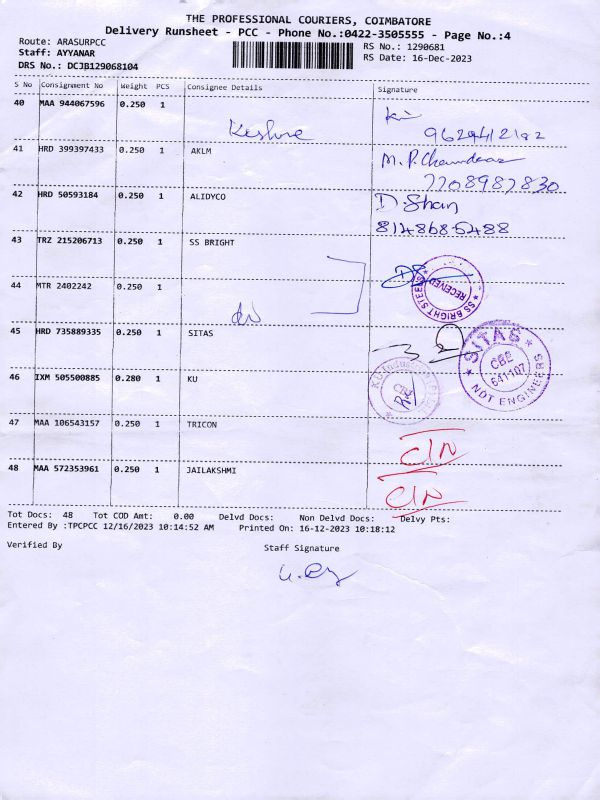 THE PROFESSIONAL COURIERS, COIMBATORE
Delivery Runsheet - PCC - Phone No.:0422-3505555 - Page No.:4
Route: ARASURPCC
RS No.: 1290681
Staff: AYYANAR
RS Date: 16-Dec-2023
DRS No.: DCJB129068104
S No Consignment No Weight PCS Consignee Details Signature
40 MAA 944067596 0.250 1
Keshre
9629412182
41 HRD 399397433 0.250 1 AKLM M.P.Chandran
7708987830
42 HRD 50593184 0.250 1 ALIDYCO D Shan
8148685488
43 TRZ 215206713 0.250 1 SS BRIGHT
SS BRIGHT STEELS
RECEIVED
44 MTR 2402242 0.250 1
45 HRD 735889335 0.250 1 SITAS
SITAS
CBE
641107
NDT ENGINEERS
46 IXM 505500885 0.280 1 KU
CBE
47 MAA 106543157 0.250 1 TRICON
C/N
48 MAA 572353961 0.250 1 JAILAKSHMI
C/N
Tot Docs: 48 Tot COD Amt: 0.00 Delvd Docs: Non Delvd Docs: Delvy Pts:
Entered By :TPCPCC 12/16/2023 10:14:52 AM Printed On: 16-12-2023 10:18:12
Verified By Staff Signature